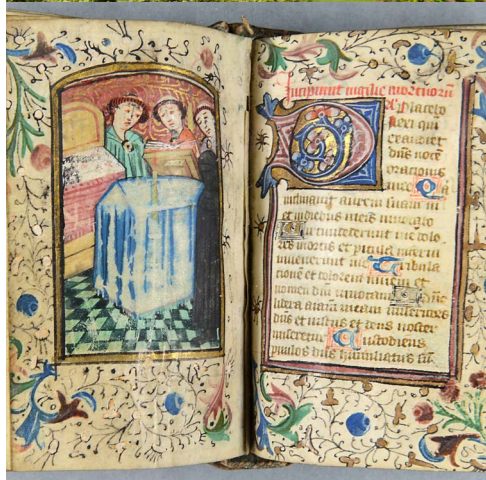 Incipiunt vigilie mortuorū
Placebo
Dilexi qm
exaudiet
dn̄s vocē
orationis
mee Quia
inclinavit aurem suam m
et in diebus meis invocabo
Circumdederunt me dolo
res mortis et picula inferni
invenerunt me Tribula
cionē et dolorem inveni et
nomen dn̄i invocavi O dn̄e
libera aīam meam misericors
dn̄s et iustus et deus noster
miseretur Custodiens
pvulos dn̄s humiliatus sū